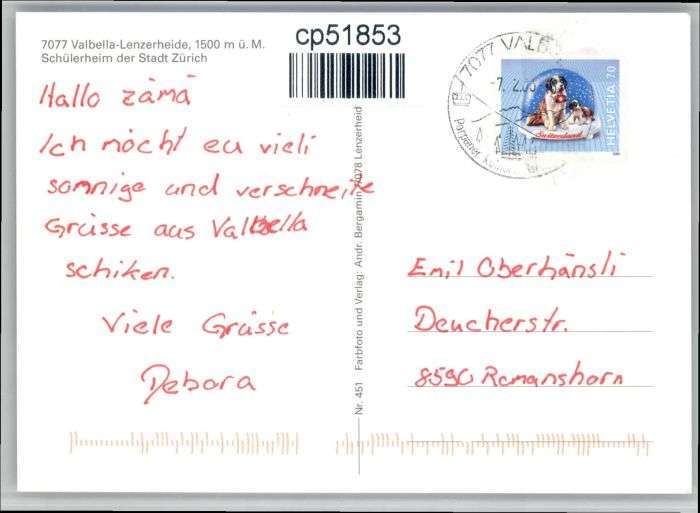 7077 Valbella-Lenzerheide, 1500 m ü. M.
Schülerheim der Stadt Zürich
cp51853
Hallo zämä
Ich möcht eu vieli
sonnige und verschneite
Grüsse aus Valbella
schiken.
Viele Grüsse
Debora
Nr. 451 Farbfoto und Verlag: Andr. Bergamin 7078 Lenzerheid
7077 VALB
-7. 2.
Switzerland
HELVETIA 70
Emil Oberhänsli
Deucherstr.
8590 Romanshorn